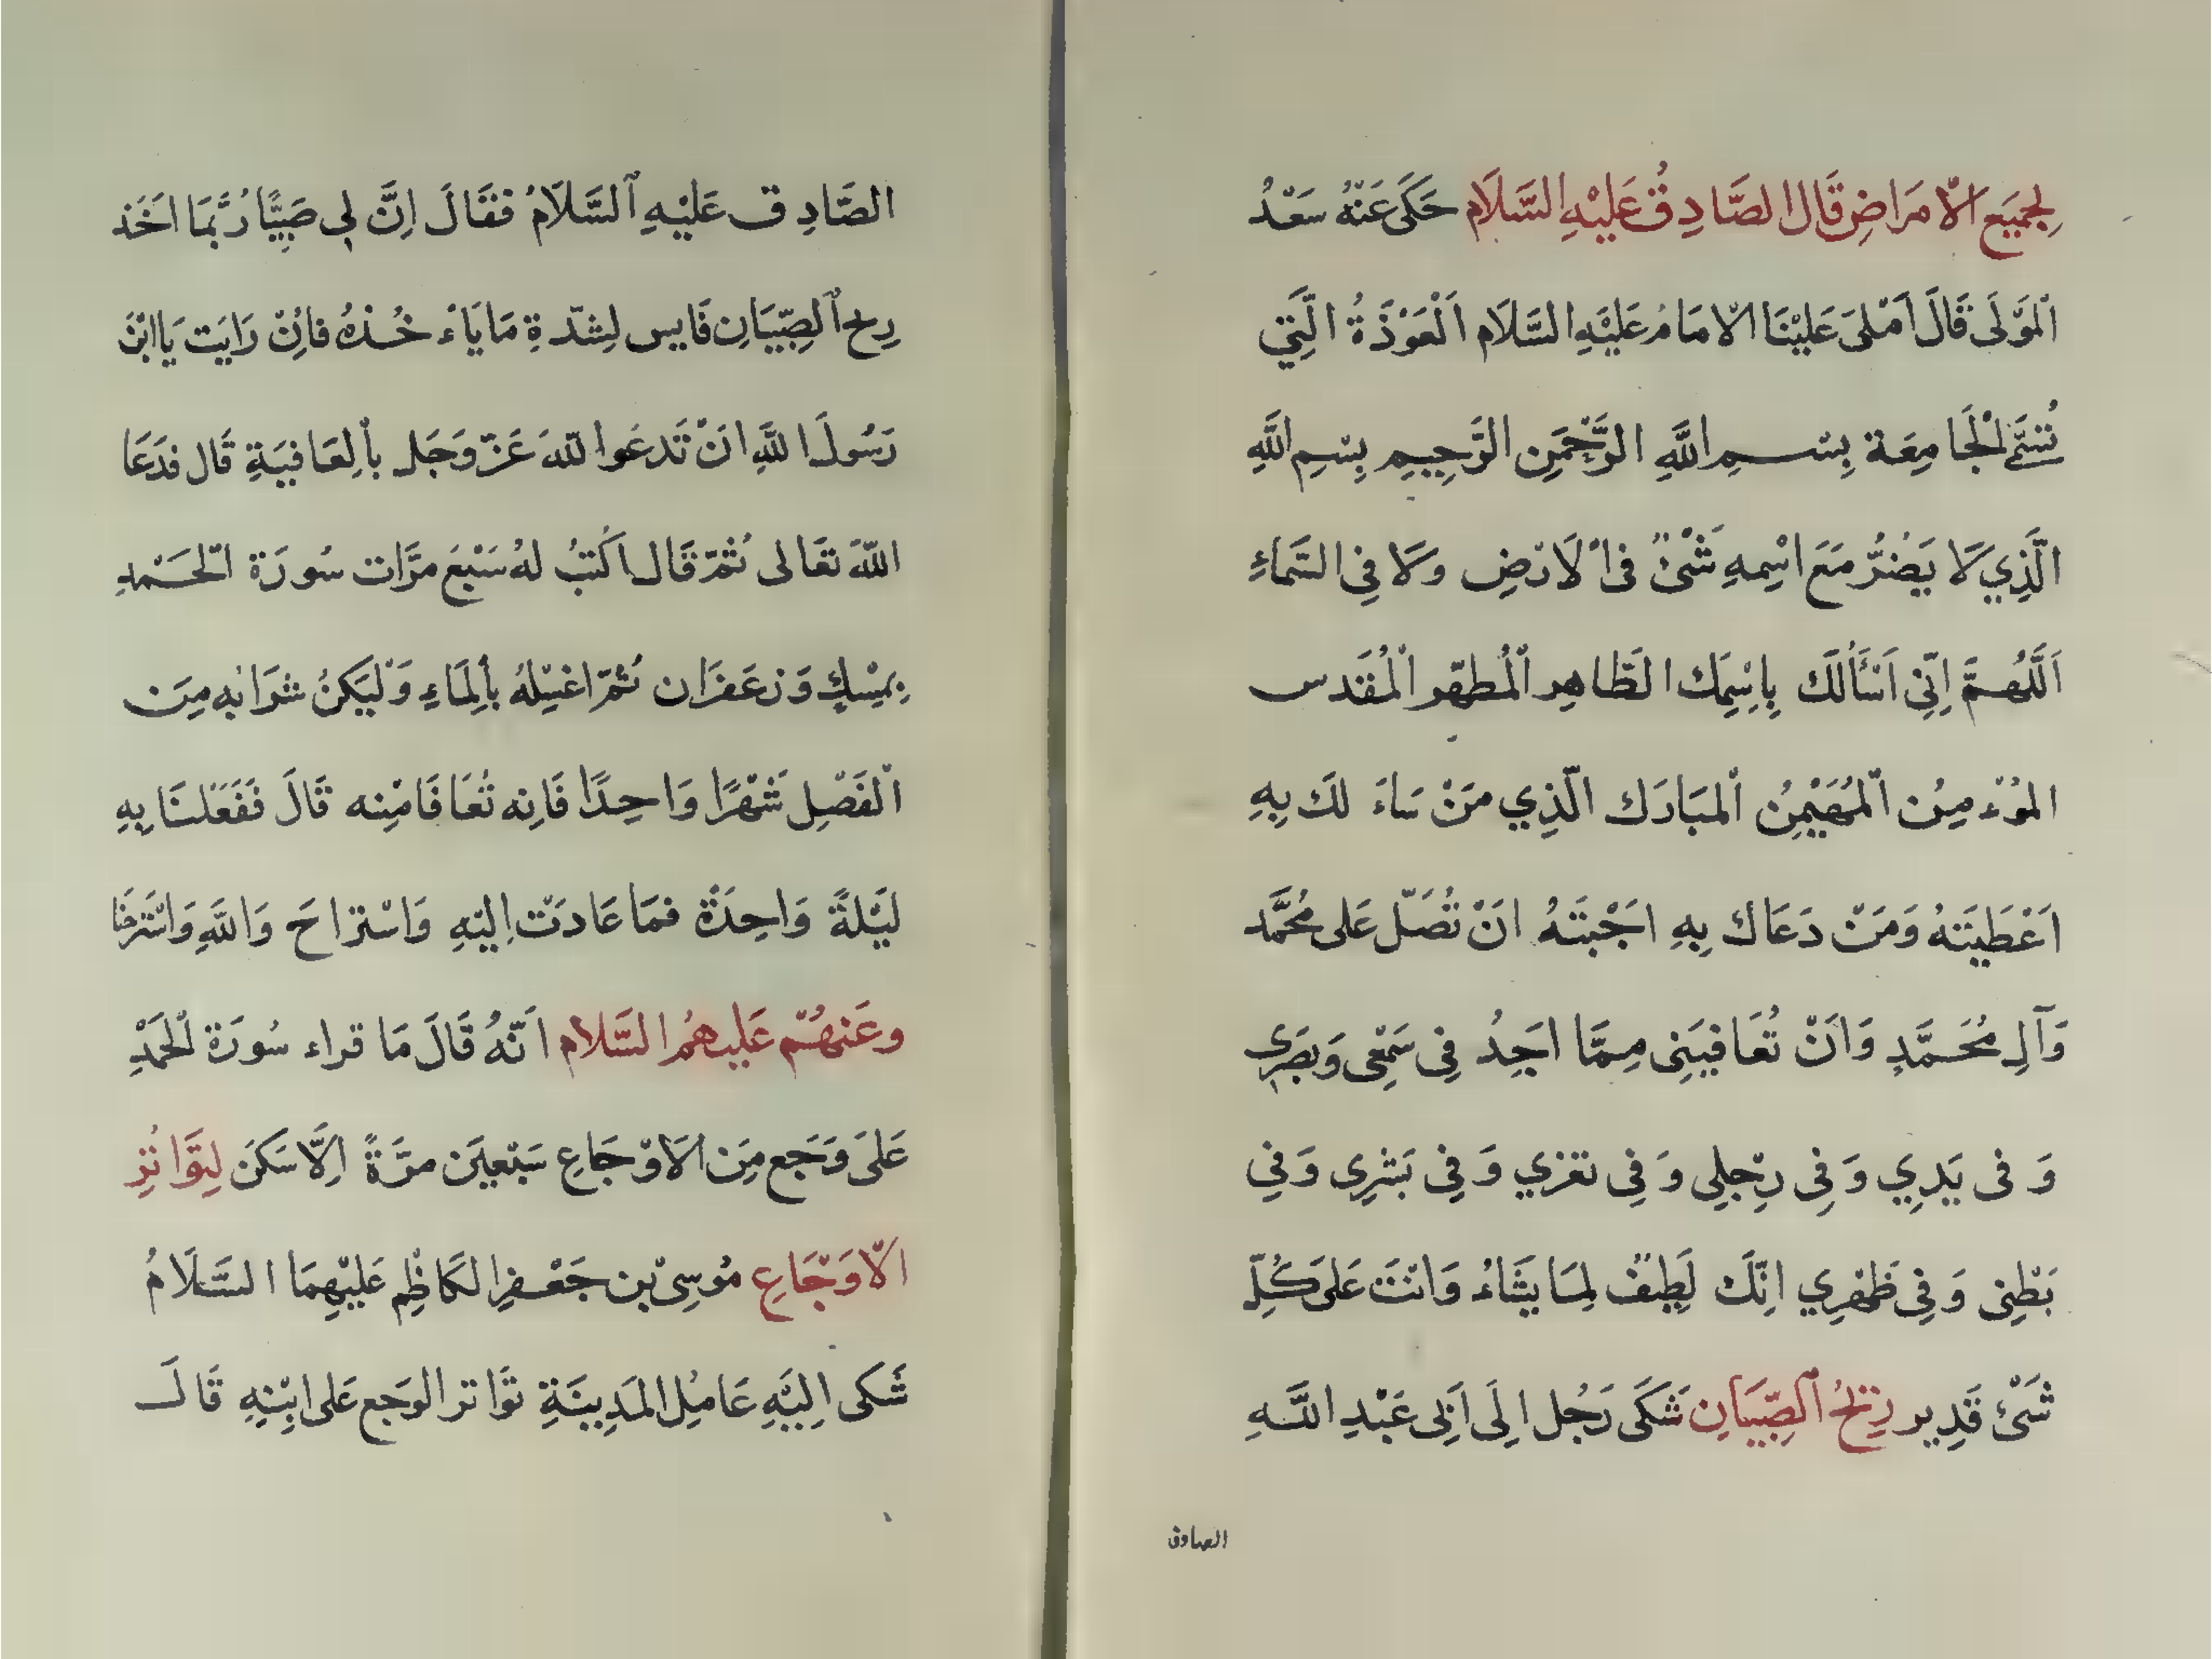 لِجَمِيَع الْاَّمَرَاضِ قَالَ الصَّادِقُ عَلَيْهِ السَّلَام حَكَى عَنْهُ سَعْدُ
اَلْمَوْلَى قَالَ اَمْلىَ عَلَيْنَا الْاِمَامُ عَلَيْهِ السَّلَام اَلْعَوْذَةُ الَّتِي
تُسَمَّى الْجَامِعَة بِسْمِ اللَّهِ الرَّحْمَنِ الرَّحِيمِ بِسْمِ اللَّهِ
الَّذِي لَا يَضُرُّ مَعَ اسْمِهِ شَىْءٌ فىِ الْاَرْضِ وَلَا فِي السَّمَاءِ
اَللَّهُمَّ اِنِّي اَسْئَلُكَ بِاِسْمِكَ الطَّاهِرِ الْمُطَهَّرِ الْمُقَدَس
الْمُؤْمِنِ الْمُهَيْمِنِ الْمُبَارَك الَّذِي مَنْ سَاءَ لَكَ بِهِ
اَعْطَيْتَهُ وَمَنْ دَعَاك بِهِ اَجَبْتَهُ اَنْ تُصَلّ عَلى مُحَمَّد
وَآلِ مُحَمَّدٍ وَاَنْ تُعَافِيَنِى مِمَّا اَجِدُ فِي سَمْعِى وَبَصَرِي
وَ فى يَدِي وَ فِى رِجْلِي وَ فِى تغزي وَ فِي بَشَرِي وَ فِي
بَطْنِى وَ فِى ظَهْرِي اِنَّكَ لَطِيفٌ لِمَا يَشَاءُ وَانْتَ عَلىَ كُلِّ
شَىْءٍ قَدِير رِيْحُ الصِّبْيَانِ شَكَى رَجُل اِلَى اَبِى عَبْدِ اللَّهِ
الصادق
الصَّادِق عَلَيْهِ السَّلَامُ فَقَالَ اِنَّ لِي صَبِيًّا رُبَّمَا اَخَذ
رِيح الصِّبْيَانِ فَايس لِشِدّةِ مَا يَاءْ خُذهُ فَاِنْ رَايَت يَا ابْنَ
رَسُولَ اللَّهِ اَنْ تَدعَو اللّهَ عَزّ وَجَل بِالْعَافِيَةِ قَال فَدَعَا
اللّهَ تَعَالى ثُمّ قَال اَكتبُ لهُ سَبْعَ مَرَّات سُورَة الْحَمْدِ
بِمِسْكٍ وَزعَفَرَان ثُمّ اغسِلهُ بِالْمَاءِ وَلْيَكنُ شَرَابُه مِنَ
الْفَصْلِ شَهْرًا وَاحِدًا فَاِنه تُعَافَا مِنْه قَالَ فَفَعَلنَا بِهِ
لَيْلةً وَاحِدَةْ فمَا عَادَتْ اِليْهِ وَاسْتراحَ وَاللَّهِ وَاسْتَرحْنَا
وعَنهُمْ عَليهمُ السَّلام اَنّهُ قَالَ مَا قراء سُورَة الْحَمْدِ
عَلىَ وَجَع مِنَ الْاَوْجَاعِ سَبْعِينَ مَرَّةً اِلَّا سَكَنَ لِتَوَاتُرِ
الْاَوْجَاعِ مُوسىٰ بْن جَعْفرِ الكَاظِمِ عَلَيْهِمَا السَّلَامُ
شَكى اِلَيْهِ عَامِلِ الْمَدِينَةِ تَوَاتر الوَجَع عَلى ابْنِهِ قَالَ